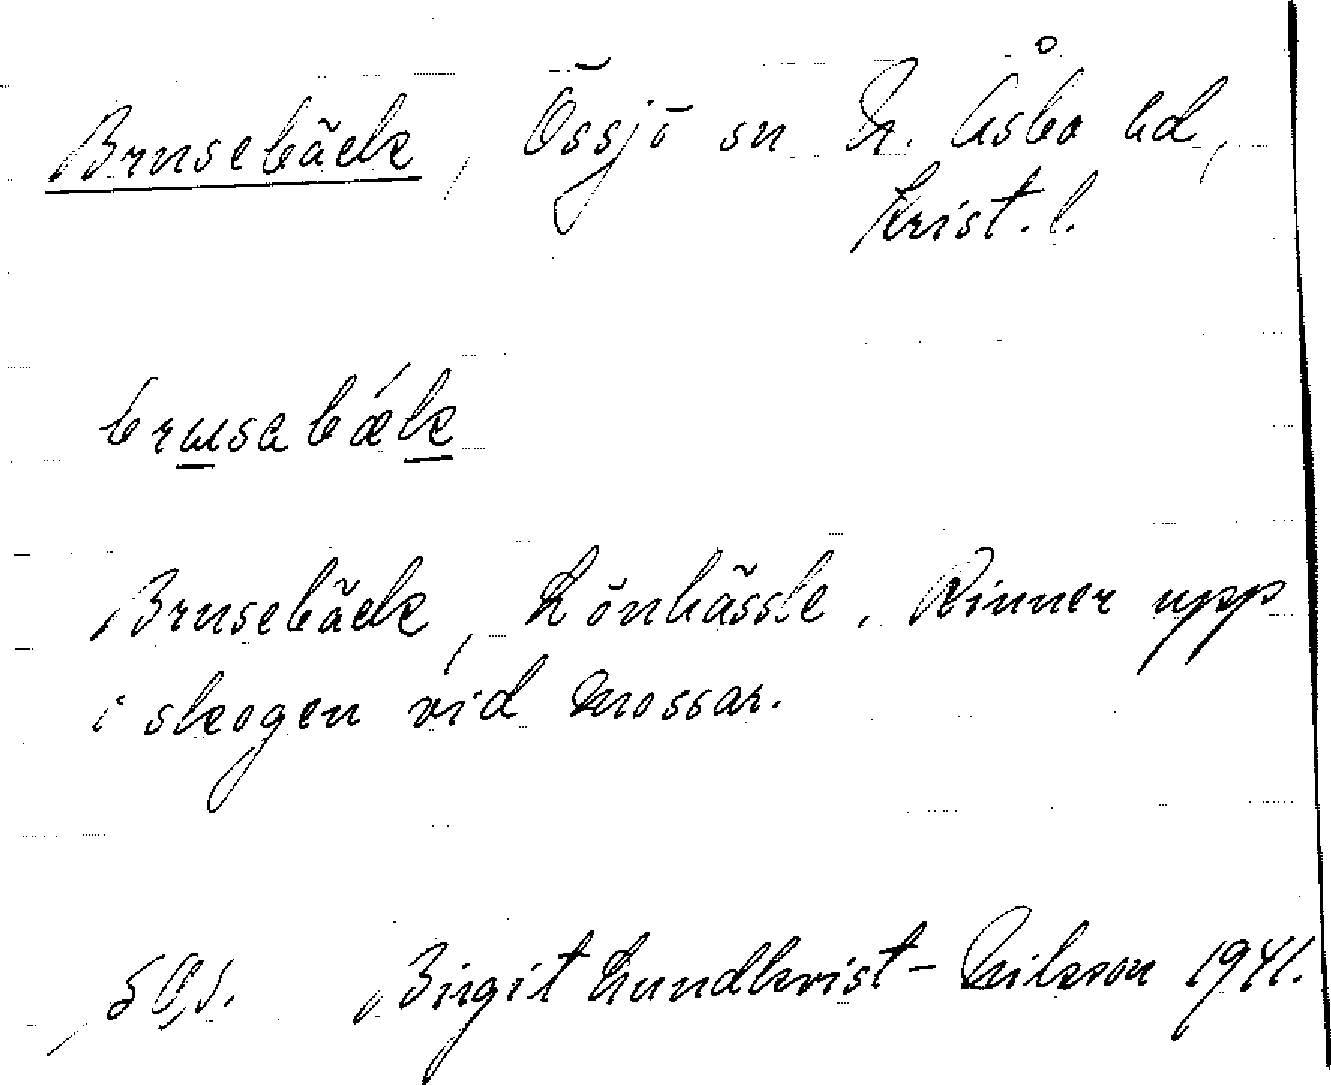 Brusebäck, Össjö sn N. Åsbo hd,
Krist. l.
brusabæk
Brusebäck, Lönhässle. Rinner upp
i skogen vid mossar.
Birgit Lundkvist-Nilsson 1941.